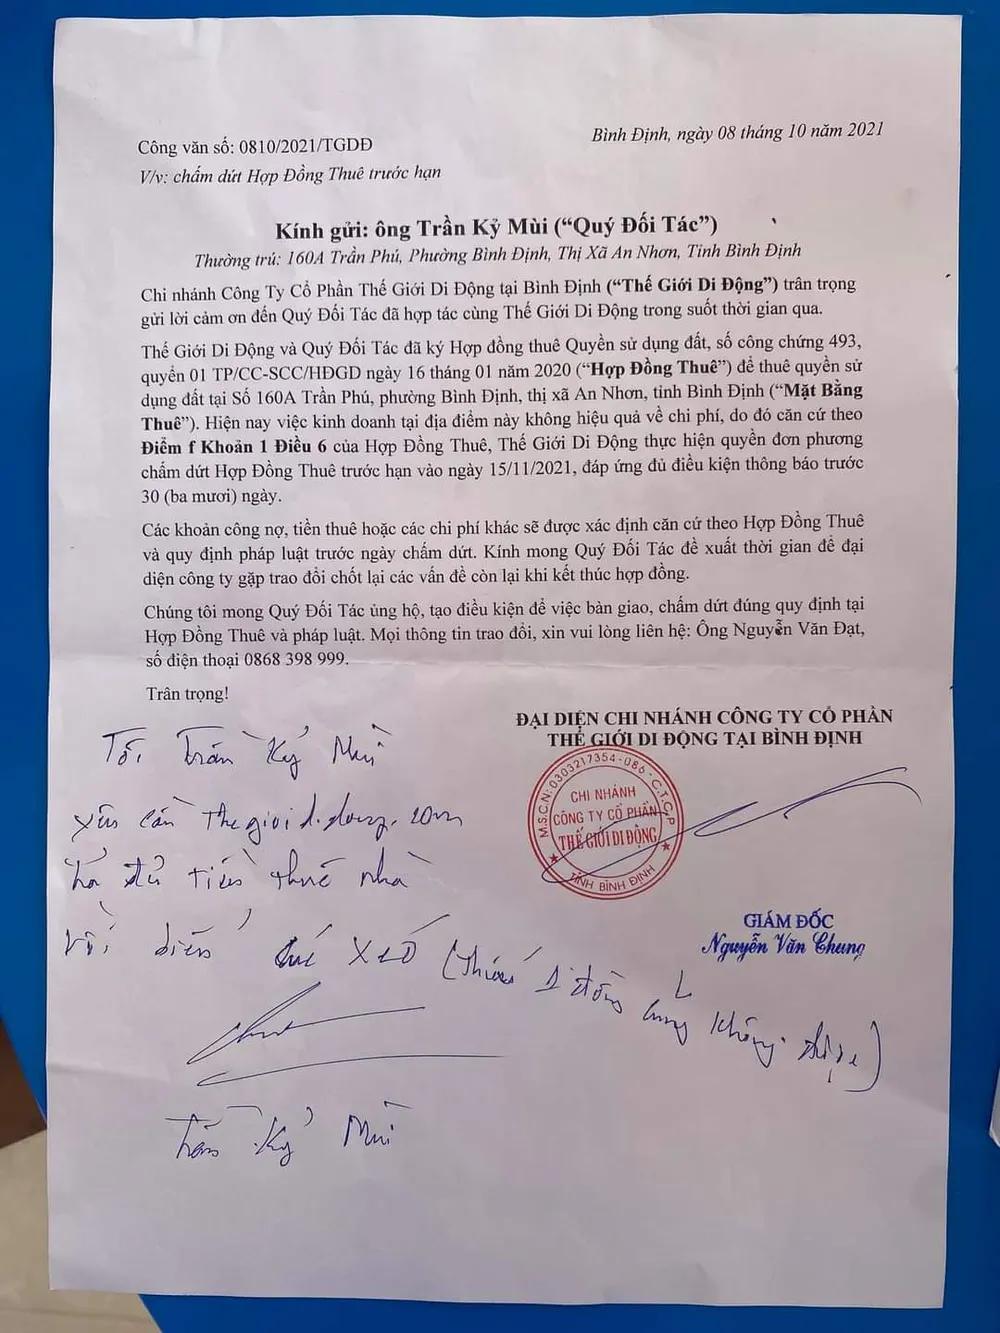 Công văn số: 0810/2021/TGDĐ
Bình Định, ngày 08 tháng 10 năm 2021
V/v: chấm dứt Hợp Đồng Thuê trước hạn
Kính gửi: ông Trần Kỷ Mùi (“Quý Đối Tác”)
Thường trú: 160A Trần Phú, Phường Bình Định, Thị Xã An Nhơn, Tỉnh Bình Định
Chi nhánh Công Ty Cổ Phần Thế Giới Di Động tại Bình Định (“Thế Giới Di Động”) trân trọng
gửi lời cảm ơn đến Quý Đối Tác đã hợp tác cùng Thế Giới Di Động trong suốt thời gian qua.
Thế Giới Di Động và Quý Đối Tác đã ký Hợp đồng thuê Quyền sử dụng đất, số công chứng 493,
quyển 01 TP/CC-SCC/HĐGD ngày 16 tháng 01 năm 2020 (“Hợp Đồng Thuê”) để thuê quyền sử
dụng đất tại Số 160A Trần Phú, phường Bình Định, thị xã An Nhơn, tỉnh Bình Định (“Mặt Bằng
Thuê”). Hiện nay việc kinh doanh tại địa điểm này không hiệu quả về chi phí, do đó căn cứ theo
Điểm f Khoản 1 Điều 6 của Hợp Đồng Thuê, Thế Giới Di Động thực hiện quyền đơn phương
chấm dứt Hợp Đồng Thuê trước hạn vào ngày 15/11/2021, đáp ứng đủ điều kiện thông báo trước
30 (ba mươi) ngày.
Các khoản công nợ, tiền thuê hoặc các chi phí khác sẽ được xác định căn cứ theo Hợp Đồng Thuê
và quy định pháp luật trước ngày chấm dứt. Kính mong Quý Đối Tác đề xuất thời gian để đại
diện công ty gặp trao đổi chốt lại các vấn đề còn lại khi kết thúc hợp đồng.
Chúng tôi mong Quý Đối Tác ủng hộ, tạo điều kiện để việc bàn giao, chấm dứt đúng quy định tại
Hợp Đồng Thuê và pháp luật. Mọi thông tin trao đổi, xin vui lòng liên hệ: Ông Nguyễn Văn Đạt,
số điện thoại 0868 398 999.
Trân trọng!
ĐẠI DIỆN CHI NHÁNH CÔNG TY CỔ PHẦN
THẾ GIỚI DI ĐỘNG TẠI BÌNH ĐỊNH
M.S.C.N: 0303217354-086 - C.T.C.P
CHI NHÁNH
CÔNG TY CỔ PHẦN
THẾ GIỚI DI ĐỘNG
TỈNH BÌNH ĐỊNH
GIÁM ĐỐC
Nguyễn Văn Chung
Tôi Trần Kỷ Mùi
thegioididong.com
trả đủ tiền thuê nhà
(thiếu 1 đồng cũng không được)
Trần Kỷ Mùi